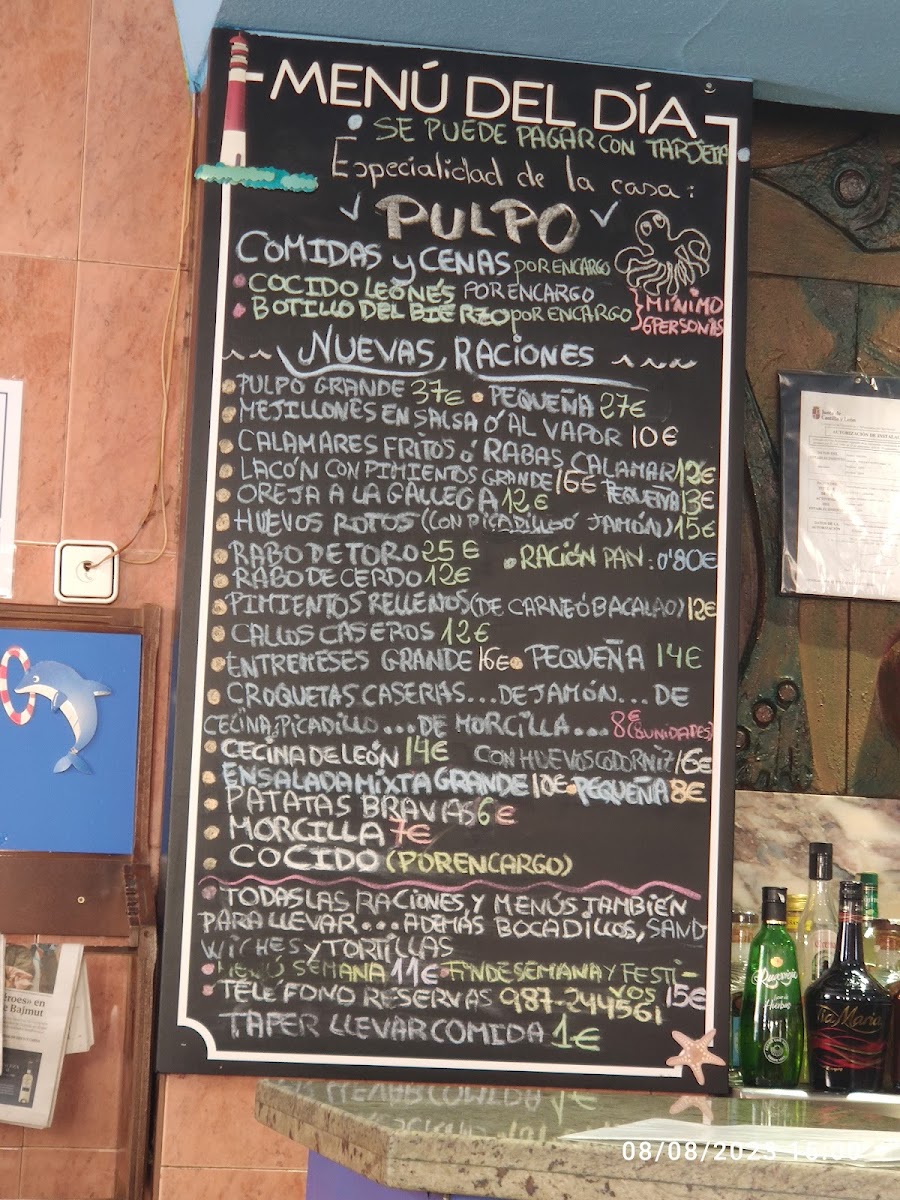 MENÚ DEL DÍA
SE PUEDE PAGAR CON TARJETA
Especialidad de la casa:
PULPO
COMIDAS y CENAS POR ENCARGO
COCIDO LEONÉS POR ENCARGO
BOTILLO DEL BIERZO POR ENCARGO
MÍNIMO
6 PERSONAS
NUEVAS RACIONES
PULPO GRANDE 37€ • PEQUEÑA 27€
MEJILLONES EN SALSA Ó AL VAPOR 10€
CALAMARES FRITOS Ó RABAS CALAMAR 12€
LACÓN CON PIMIENTOS GRANDE 16€ PEQUEÑA 13€
OREJA A LA GALLEGA 12€
HUEVOS ROTOS (CON PICADILLO Ó JAMÓN) 15€
RABO DE TORO 25€ • RACIÓN PAN: 0'80€
RABO DE CERDO 12€
PIMIENTOS RELLENOS (DE CARNE Ó BACALAO) 12€
CALLOS CASEROS 12€
ENTREMESES GRANDE 16€ • PEQUEÑA 14€
CROQUETAS CASERAS... DE JAMÓN... DE
CECINA, PICADILLO... DE MORCILLA... 8€ (8 UNIDADES)
CECINA DE LEÓN 14€ CON HUEVOS CODORNIZ 16€
ENSALADA MIXTA GRANDE 10€ • PEQUEÑA 8€
PATATAS BRAVAS 6€
MORCILLA 7€
COCIDO (POR ENCARGO)
TODAS LAS RACIONES Y MENÚS TAMBIÉN
PARA LLEVAR... ADEMÁS BOCADILLOS, SAND
WICHES Y TORTILLAS
MENÚ SEMANA 11€ • FIN DE SEMANA Y FESTI-
VOS 15€
TELÉFONO RESERVAS 987-244561
TAPER LLEVAR COMIDA 1€
Junta de
Castilla y León
eroes» en
e Bajmut
Ruavieja
Hierbas
Tia Maria
08/08/2023